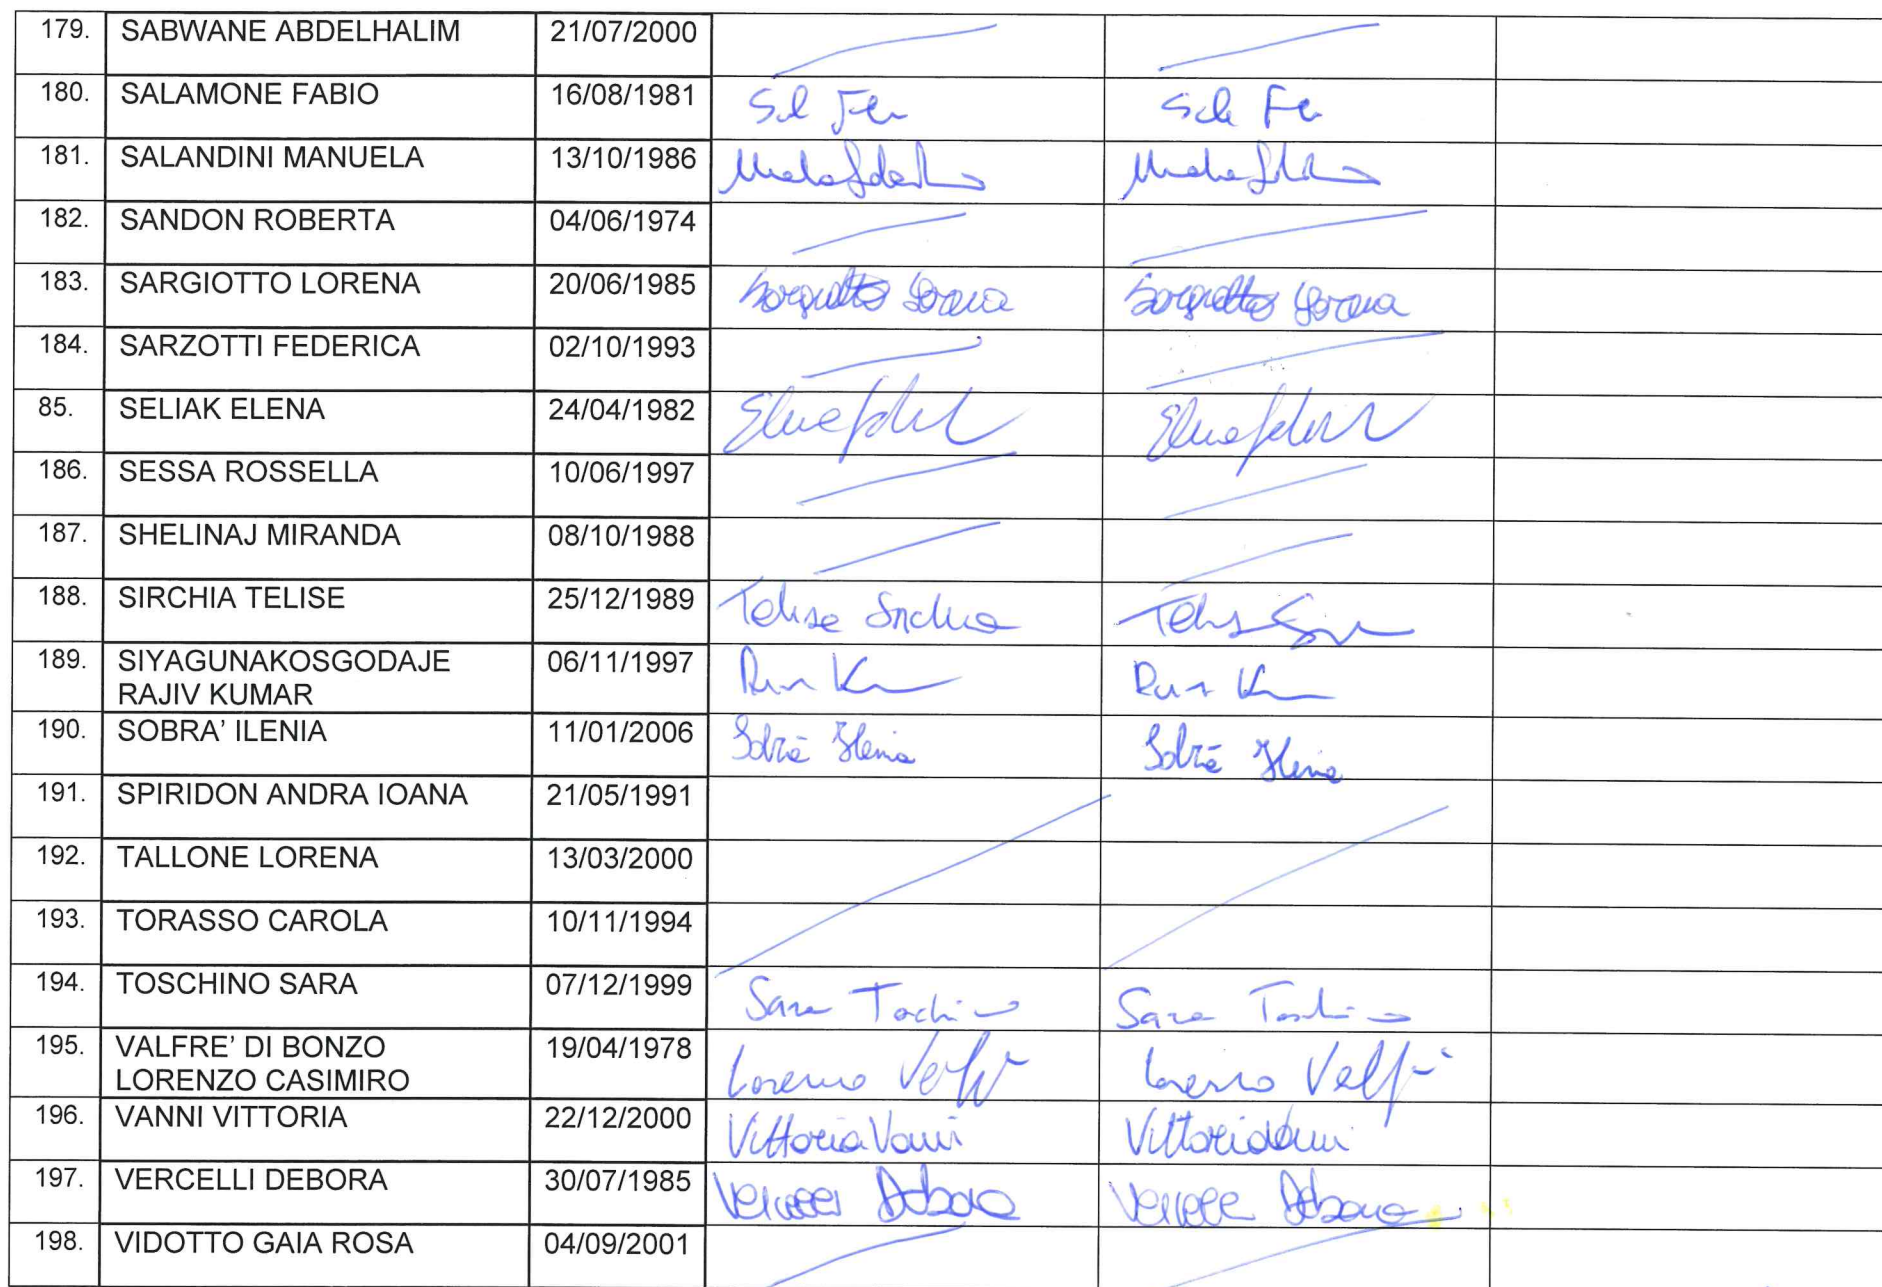 179. SABWANE ABDELHALIM 21/07/2000
180. SALAMONE FABIO 16/08/1981
181. SALANDINI MANUELA 13/10/1986
182. SANDON ROBERTA 04/06/1974
183. SARGIOTTO LORENA 20/06/1985
184. SARZOTTI FEDERICA 02/10/1993
85. SELIAK ELENA 24/04/1982
186. SESSA ROSSELLA 10/06/1997
187. SHELINAJ MIRANDA 08/10/1988
188. SIRCHIA TELISE 25/12/1989 Telise Sirchia
189. SIYAGUNAKOSGODAJE 06/11/1997
RAJIV KUMAR
190. SOBRA' ILENIA 11/01/2006 Sobrà Ilenia Sobrà Ilenia
191. SPIRIDON ANDRA IOANA 21/05/1991
192. TALLONE LORENA 13/03/2000
193. TORASSO CAROLA 10/11/1994
194. TOSCHINO SARA 07/12/1999 Sara Toschino Sara Toschino
195. VALFRE' DI BONZO 19/04/1978 Lorenzo Valfrè Lorenzo Valfrè
LORENZO CASIMIRO
196. VANNI VITTORIA 22/12/2000 Vittoria Vanni Vittoria Vanni
197. VERCELLI DEBORA 30/07/1985 Vercelli Debora Vercelli Debora
198. VIDOTTO GAIA ROSA 04/09/2001